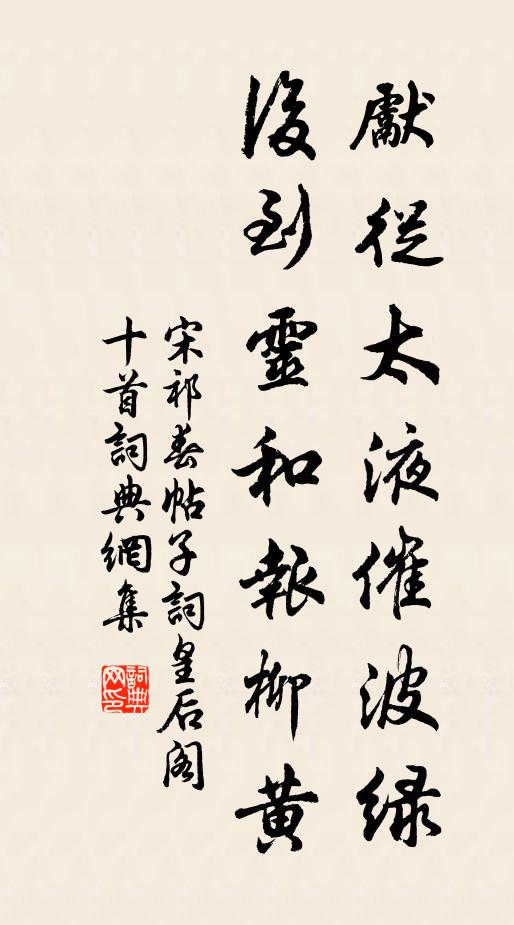 獻從太液催波綠
復到靈和報柳黃
宋祁春帖子詞皇后閣
十首詞典網集
詞典网印